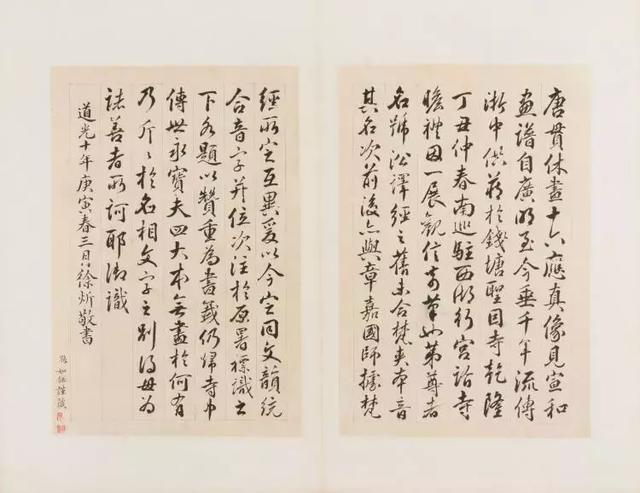 唐貫休畫十六應真像見宣和
畫譜自廣明至今垂千年流傳
浙中供藏於錢塘聖因寺乾隆
丁丑仲春南巡駐西湖行宮詣寺
瞻禮因一展觀信奇筆也第尊者
名號沿譯經之舊未合梵夾本音
其名次前後亦與章嘉國師據梵
經所定互異爰以今定同文韻統
合音字并位次注於原署標識之
下各題以贊重為書籤仍歸寺中
傳世永寶夫四大本無畫於何有
乃斤〻於名相文字之別得毋為
誌善者所訶耶御識
道光十年庚寅春三月徐炘敬書